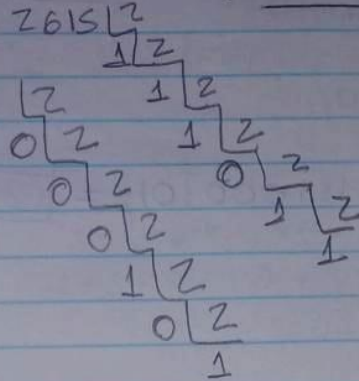 2615 2
1 2
2 1 2
0 2 1 2
0 2 0 2
0 2 1 2
1 2 1
0 2
1